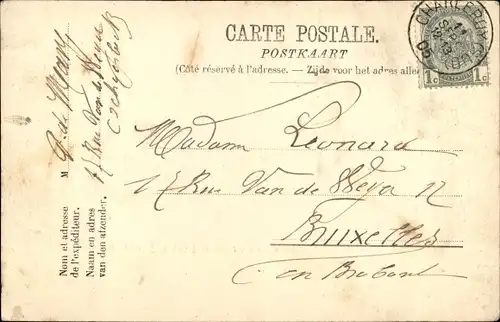 CARTE POSTALE.
POSTKAART
(Côté réservé à l'adresse. — Zijde voor het adres
CHARLEROY
1c 1c
Madame Leonard
17 Rue Van de Weyer 17
Bruxelles
en Brabant
M G. de
17 Rue Van de Weyer
Nom et adresse
de l'expéditeur.
Naam en adres
van den afzender.